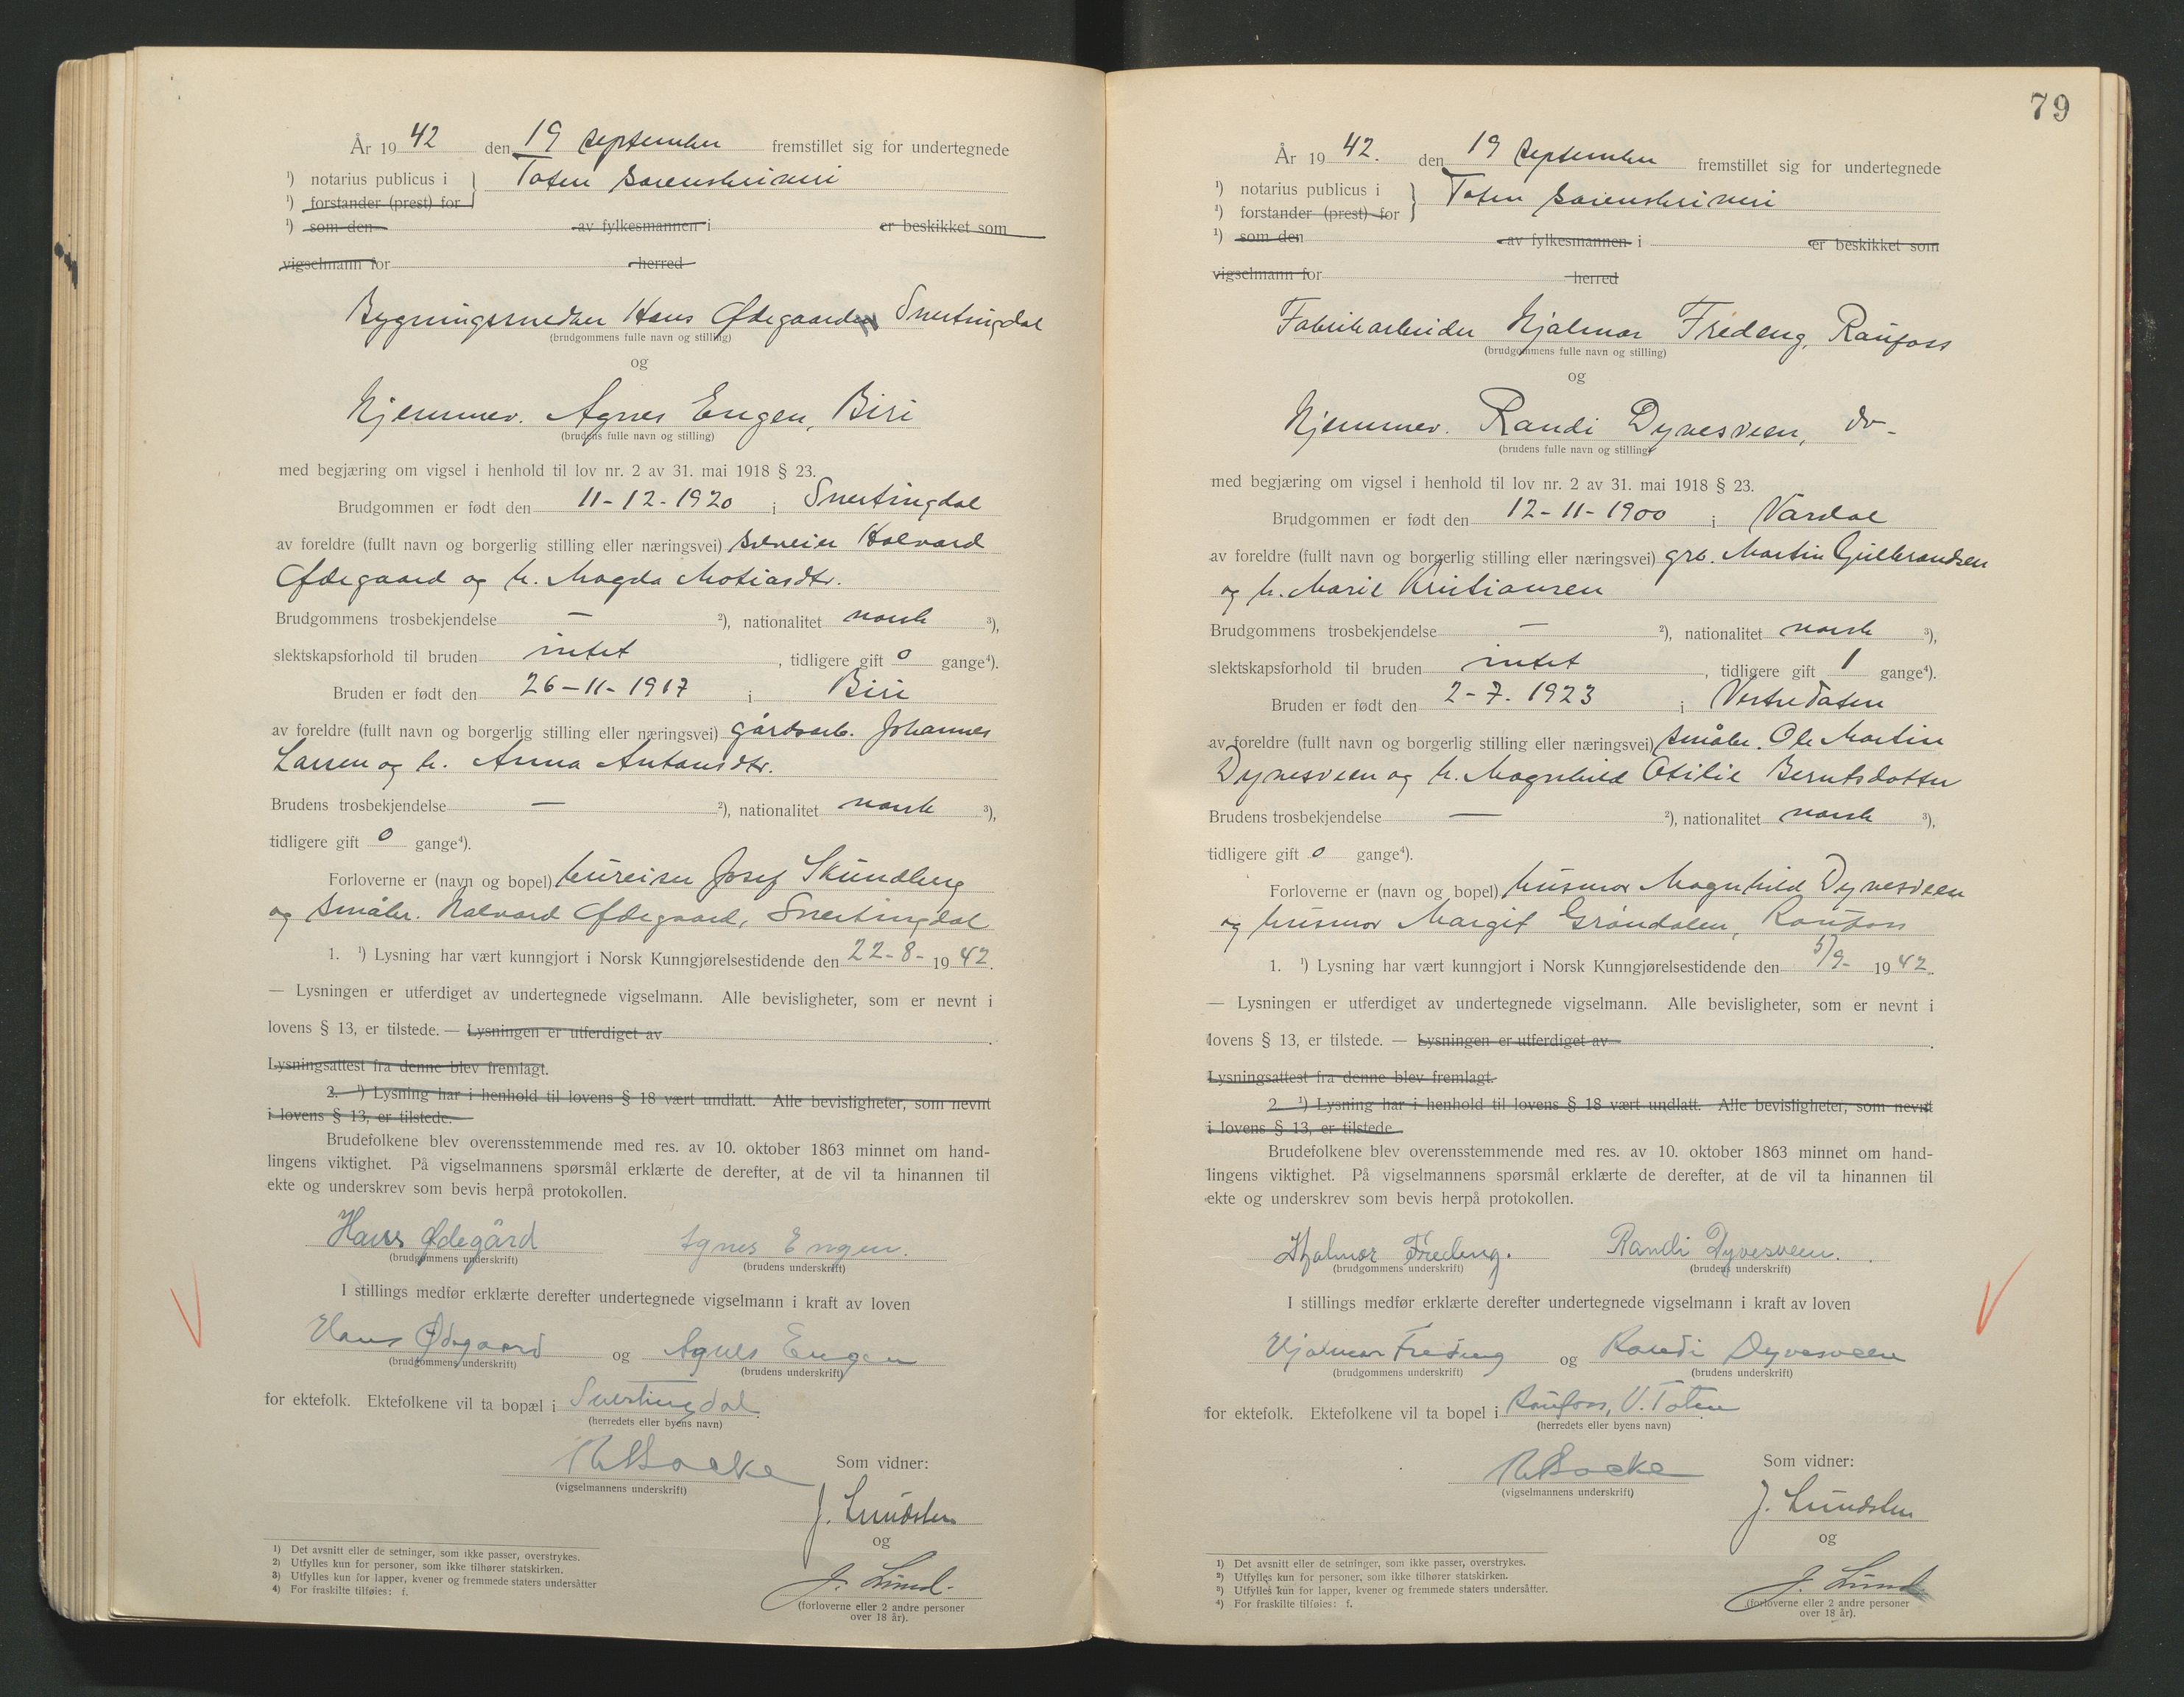 År 1942 den 19 september fremstillet sig for undertegnede
¹) notarius publicus i } Toten sorenskriveri
¹) forstander (prest) for
¹) som den av fylkesmannen i er beskikket som
vigselmann for herred
Bygningssnedker Hans Ødegaard Snertingdal
(brudgommens fulle navn og stilling)
og
Hjemmev. Agnes Engen, Biri
(brudens fulle navn og stilling)
med begjæring om vigsel i henhold til lov nr. 2 av 31. mai 1918 § 23.
Brudgommen er født den 11-12-1920 i Snertingdal
av foreldre (fullt navn og borgerlig stilling eller næringsvei) selveier Halvard
Ødegaard og h. Magda Matiasdtr.
Brudgommens trosbekjendelse — ²), nationalitet norsk ³),
slektskapsforhold til bruden intet, tidligere gift 0 gange⁴).
Bruden er født den 26-11-1917 i Biri
av foreldre (fullt navn og borgerlig stilling eller næringsvei) gårdsarb. Johannes
Larsen og h. Anna Antonsdtr.
Brudens trosbekjendelse — ²), nationalitet norsk ³),
tidligere gift 0 gange⁴).
Forloverne er (navn og bopel) bureiser Josef Skundberg
og småbr. Halvard Ødegaard, Snertingdal
1. ¹) Lysning har vært kunngjort i Norsk Kunngjørelsestidende den 22-8-1942.
— Lysningen er utferdiget av undertegnede vigselmann. Alle bevisligheter, som er nevnt i
lovens § 13, er tilstede. — Lysningen er utferdiget av
Lysningsattest fra denne blev fremlagt.
2. ¹) Lysning har i henhold til lovens § 18 vært undlatt. Alle bevisligheter, som nevnt
i lovens § 13, er tilstede.
Brudefolkene blev overensstemmende med res. av 10. oktober 1863 minnet om hand-
lingens viktighet. På vigselmannens spørsmål erklærte de derefter, at de vil ta hinannen til
ekte og underskrev som bevis herpå protokollen.
Hans Ødegård Agnes Engen.
(brudgommens underskrift) (brudens underskrift)
I stillings medfør erklærte derefter undertegnede vigselmann i kraft av loven
Hans Ødegaard og Agnes Engen
(brudgommens underskrift) (brudens underskrift)
for ektefolk. Ektefolkene vil ta bopæl i Snertingdal.
(herredets eller byens navn)
Som vidner:
(vigselmannens underskrift)
J. Lundsten
og
J. Lund.
(forloverne eller 2 andre personer
over 18 år).
1) Det avsnitt eller de setninger, som ikke passer, overstrykes.
2) Utfylles kun for personer, som ikke tilhører statskirken.
3) Utfylles kun for lapper, kvener og fremmede staters undersåtter
4) For fraskilte tilføies: f.
79
År 1942. den 19 september fremstillet sig for undertegnede
¹) notarius publicus i } Toten sorenskriveri
¹) forstander (prest) for
¹) som den av fylkesmannen i er beskikket som
vigselmann for herred
Fabrikarbeider Hjalmar Fredeng, Raufoss
(brudgommens fulle navn og stilling)
og
Hjemmev. Randi Dyvesveen, do-
(brudens fulle navn og stilling)
med begjæring om vigsel i henhold til lov nr. 2 av 31. mai 1918 § 23.
Brudgommen er født den 12-11-1900 i Vardal
av foreldre (fullt navn og borgerlig stilling eller næringsvei) grb. Martin Gulbrandsen
og h. Marie Kristiansen
Brudgommens trosbekjendelse — ²), nationalitet norsk ³),
slektskapsforhold til bruden intet, tidligere gift 1 gange⁴).
Bruden er født den 2-7-1923 i Vestre Toten
av foreldre (fullt navn og borgerlig stilling eller næringsvei) småbr. Ole Martin
Dyvesveen og h. Magnhild Otilie Berntsdatter
Brudens trosbekjendelse — ²), nationalitet norsk ³),
tidligere gift 0 gange⁴).
Forloverne er (navn og bopel) husmor Magnhild Dyvesveen
og husmor Margit Grøndalen, Raufoss
1. ¹) Lysning har vært kunngjort i Norsk Kunngjørelsestidende den 5/9-1942.
— Lysningen er utferdiget av undertegnede vigselmann. Alle bevisligheter, som er nevnt i
lovens § 13, er tilstede. — Lysningen er utferdiget av
Lysningsattest fra denne blev fremlagt.
2. ¹) Lysning har i henhold til lovens § 18 vært undlatt. Alle bevisligheter, som nevnt
i lovens § 13, er tilstede
Brudefolkene blev overensstemmende med res. av 10. oktober 1863 minnet om hand-
lingens viktighet. På vigselmannens spørsmål erklærte de derefter, at de vil ta hinannen til
ekte og underskrev som bevis herpå protokollen.
Hjalmar Fredeng. Randi Dyvesveen.
(brudgommens underskrift) (brudens underskrift)
I stillings medfør erklærte derefter undertegnede vigselmann i kraft av loven
Hjalmar Fredeng og Randi Dyvesveen
(brudgommens underskrift) (brudens underskrift)
for ektefolk. Ektefolkene vil ta bopel i Raufoss, V. Toten
(herredets eller byens navn)
Som vidner:
(vigselmannens underskrift)
J. Lundsten
og
J. Lund
(forloverne eller 2 andre personer
over 18 år).
¹) Det avsnitt eller de setninger, som ikke passer, overstrykes.
²) Utfylles kun for personer, som ikke tilhører statskirken.
³) Utfylles kun for lapper, kvener og fremmede staters undersåtter.
⁴) For fraskilte tilføies: f.